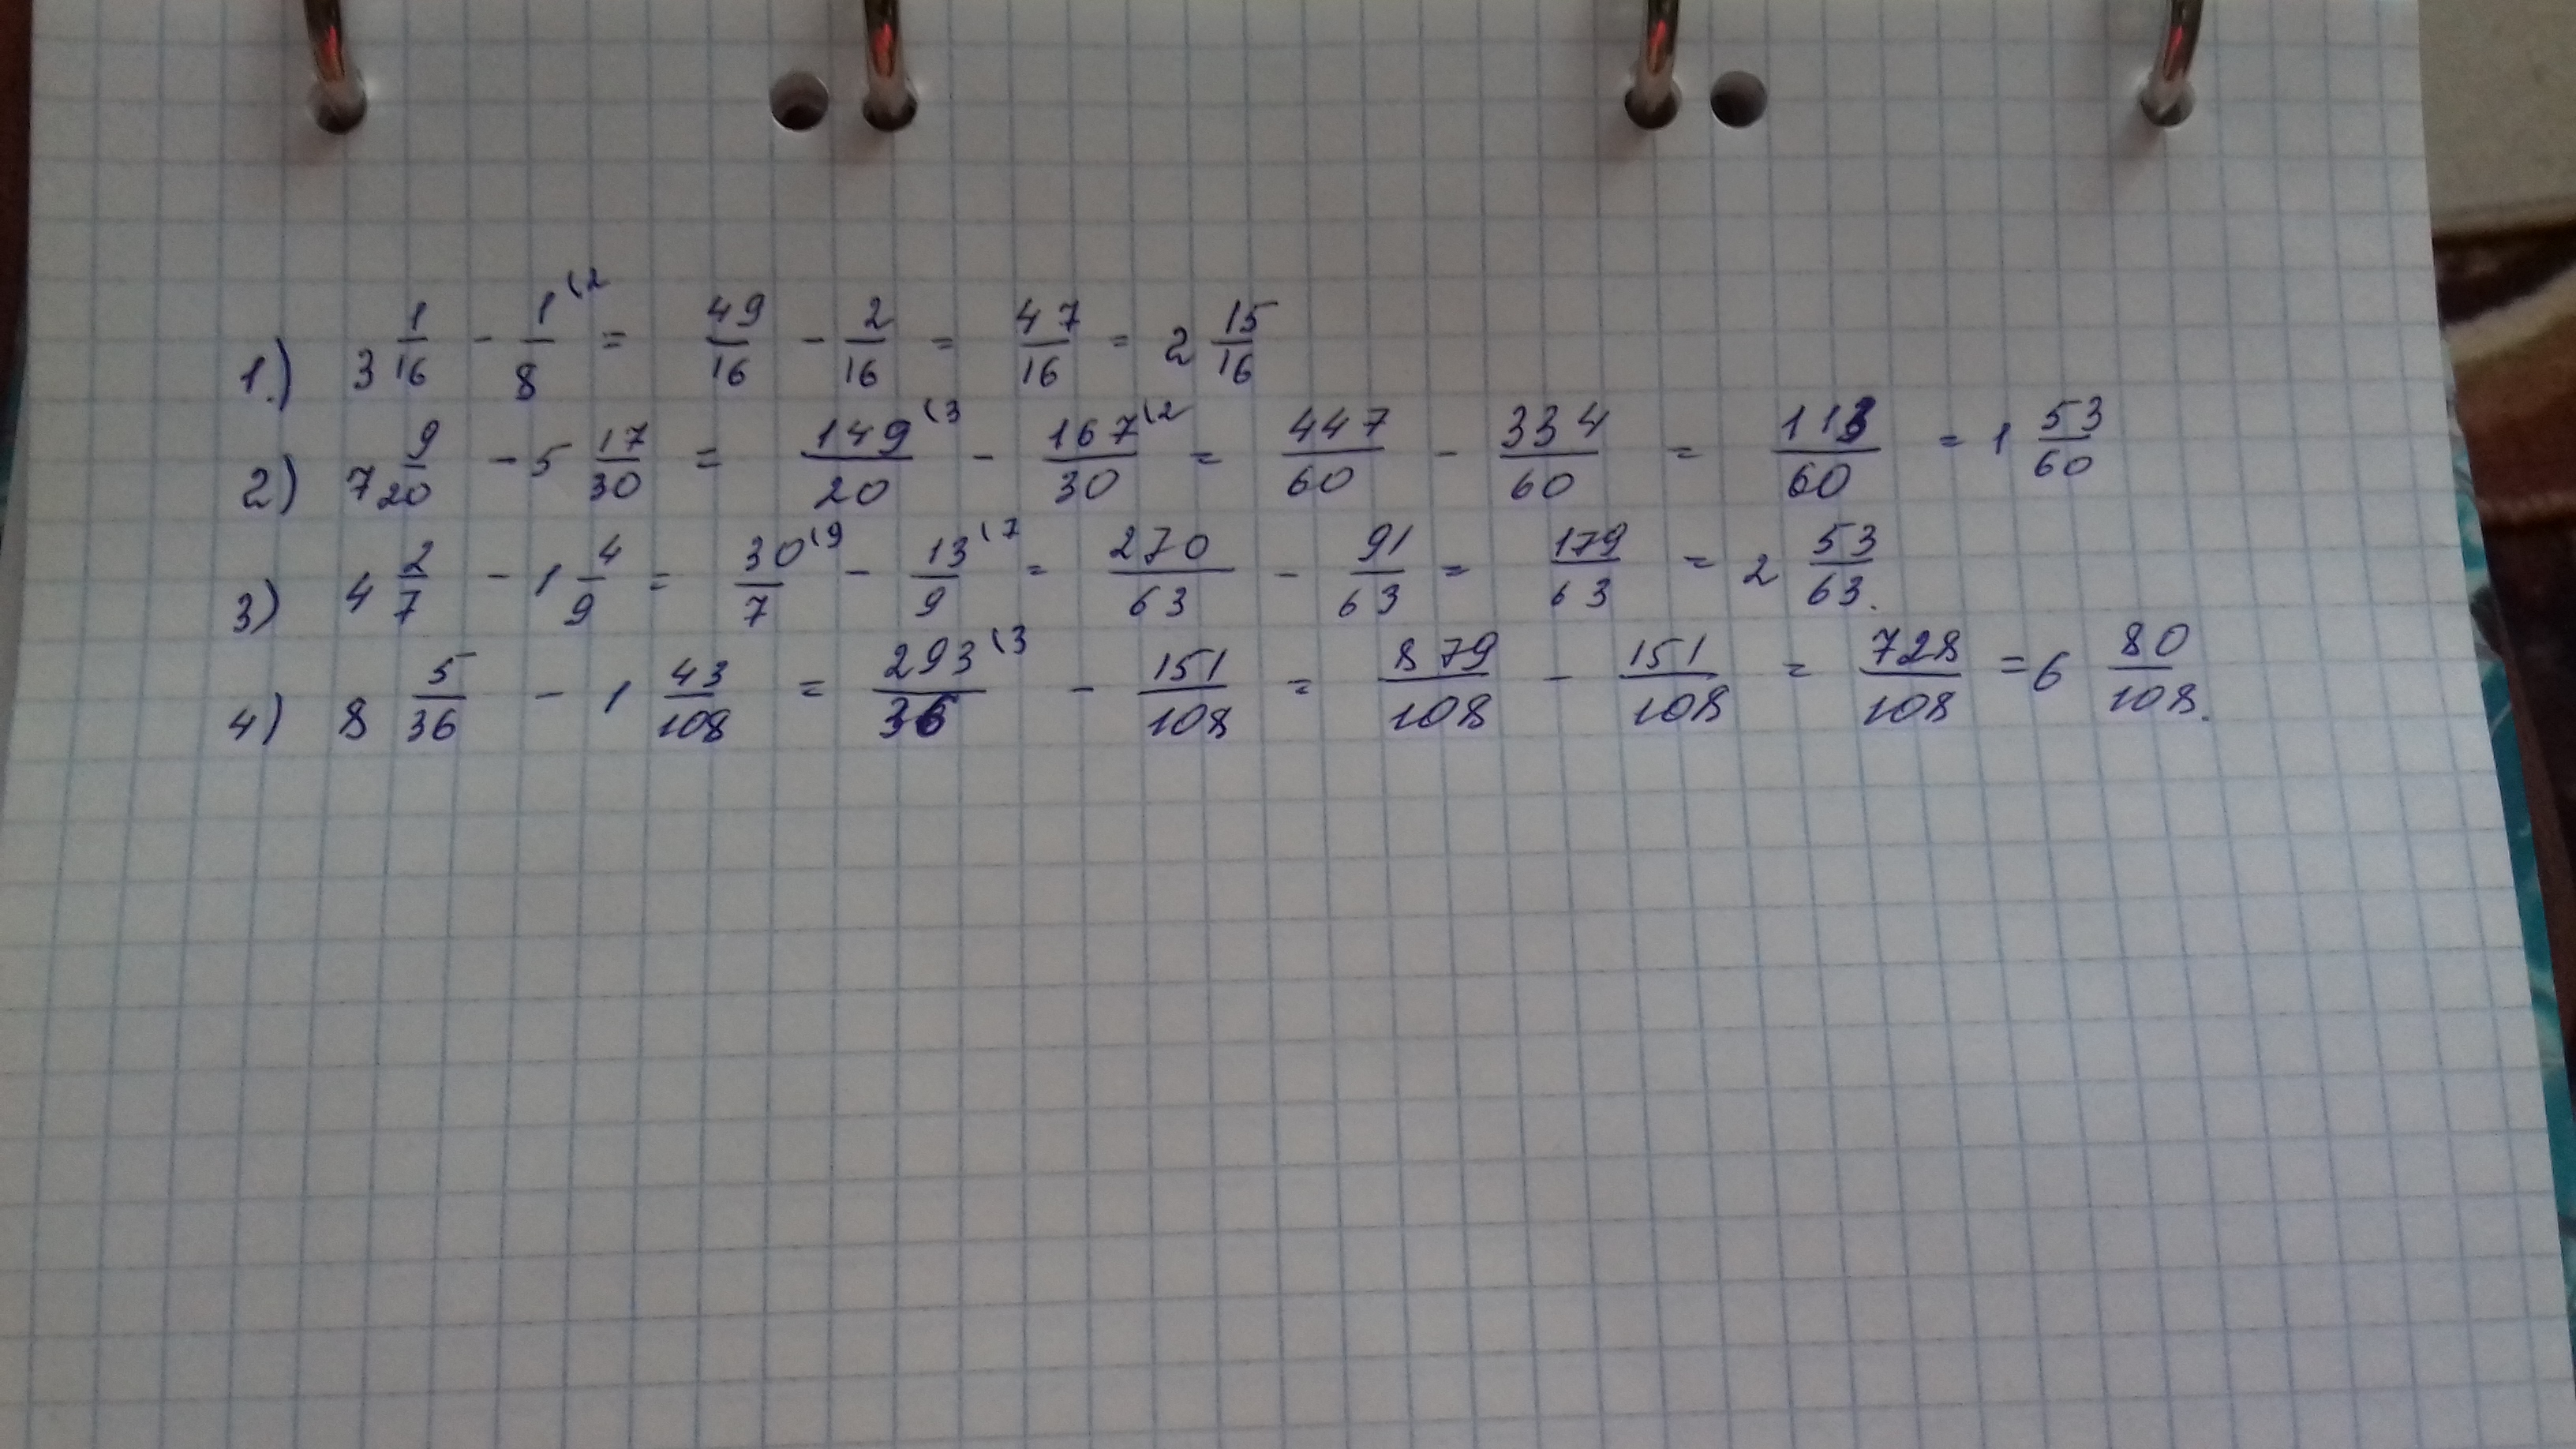 1.) 3 1/16 - 1/8 (2 = 49/16 - 2/16 = 47/16 = 2 15/16
2) 7 9/20 - 5 17/30 = 149/20 (3 - 167/30 (2 = 447/60 - 334/60 = 113/60 = 1 53/60
3) 4 2/7 - 1 4/9 = 30/7 (9 - 13/9 (7 = 270/63 - 91/63 = 179/63 = 2 53/63.
4) 8 5/36 - 1 43/108 = 293/36 (3 - 151/108 = 879/108 - 151/108 = 728/108 = 6 80/108.